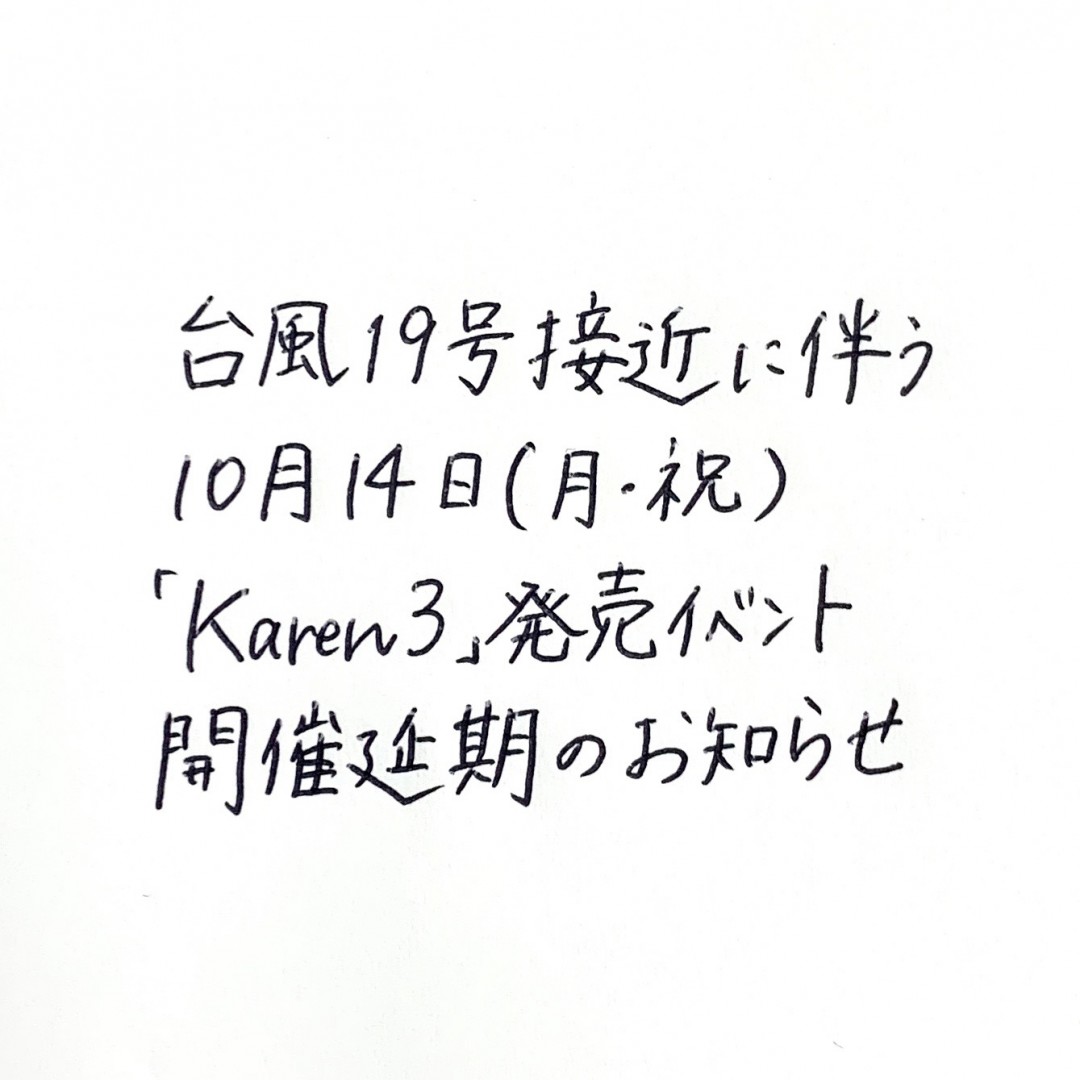 台風19号接近に伴う
10月14日(月・祝)
「Karen3」発売イベント
開催延期のお知らせ